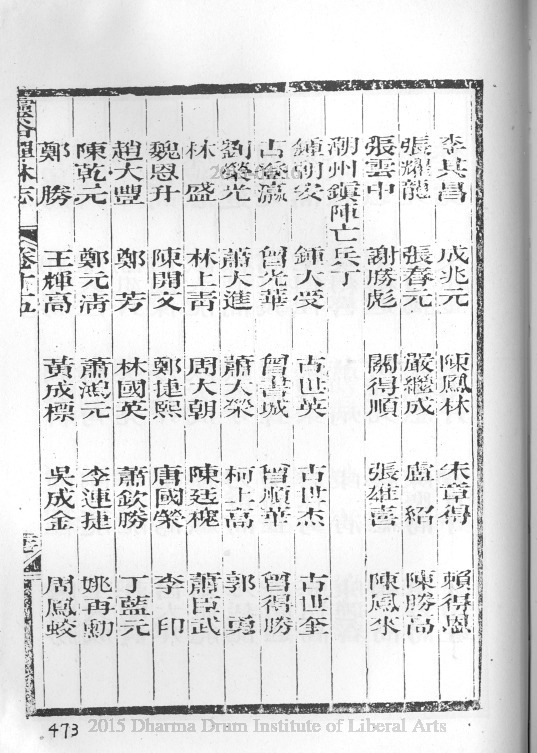 李其昌 成兆元 陳鳳林 朱章得 賴得恩
張耀龍 張春元 嚴繼成 盧紹 陳勝高
張雲中 謝勝彪 關得順 張雄喜 陳鳳來
潮州鎮陣亡兵丁
鍾朝安 鍾大受 古世英 古世杰 古世奎
古榮瀛 曾光華 曾書城 曾順華 曾得勝
劉榮光 蕭大進 蕭大榮 柯上高 郭勇
林盛 林上青 周大朝 陳廷槐 蕭臣武
魏恩升 陳開文 鄭捷熙 唐國榮 李印
趙大豐 鄭芳 林國英 蕭欽勝 丁藍元
陳乾元 鄭元清 蕭鴻元 李連捷 姚再勳
鄭勝 王輝高 黃成標 吳成金 周鳳蛟
林志 卷十五
473
2015 Dharma Drum Institute of Liberal Arts